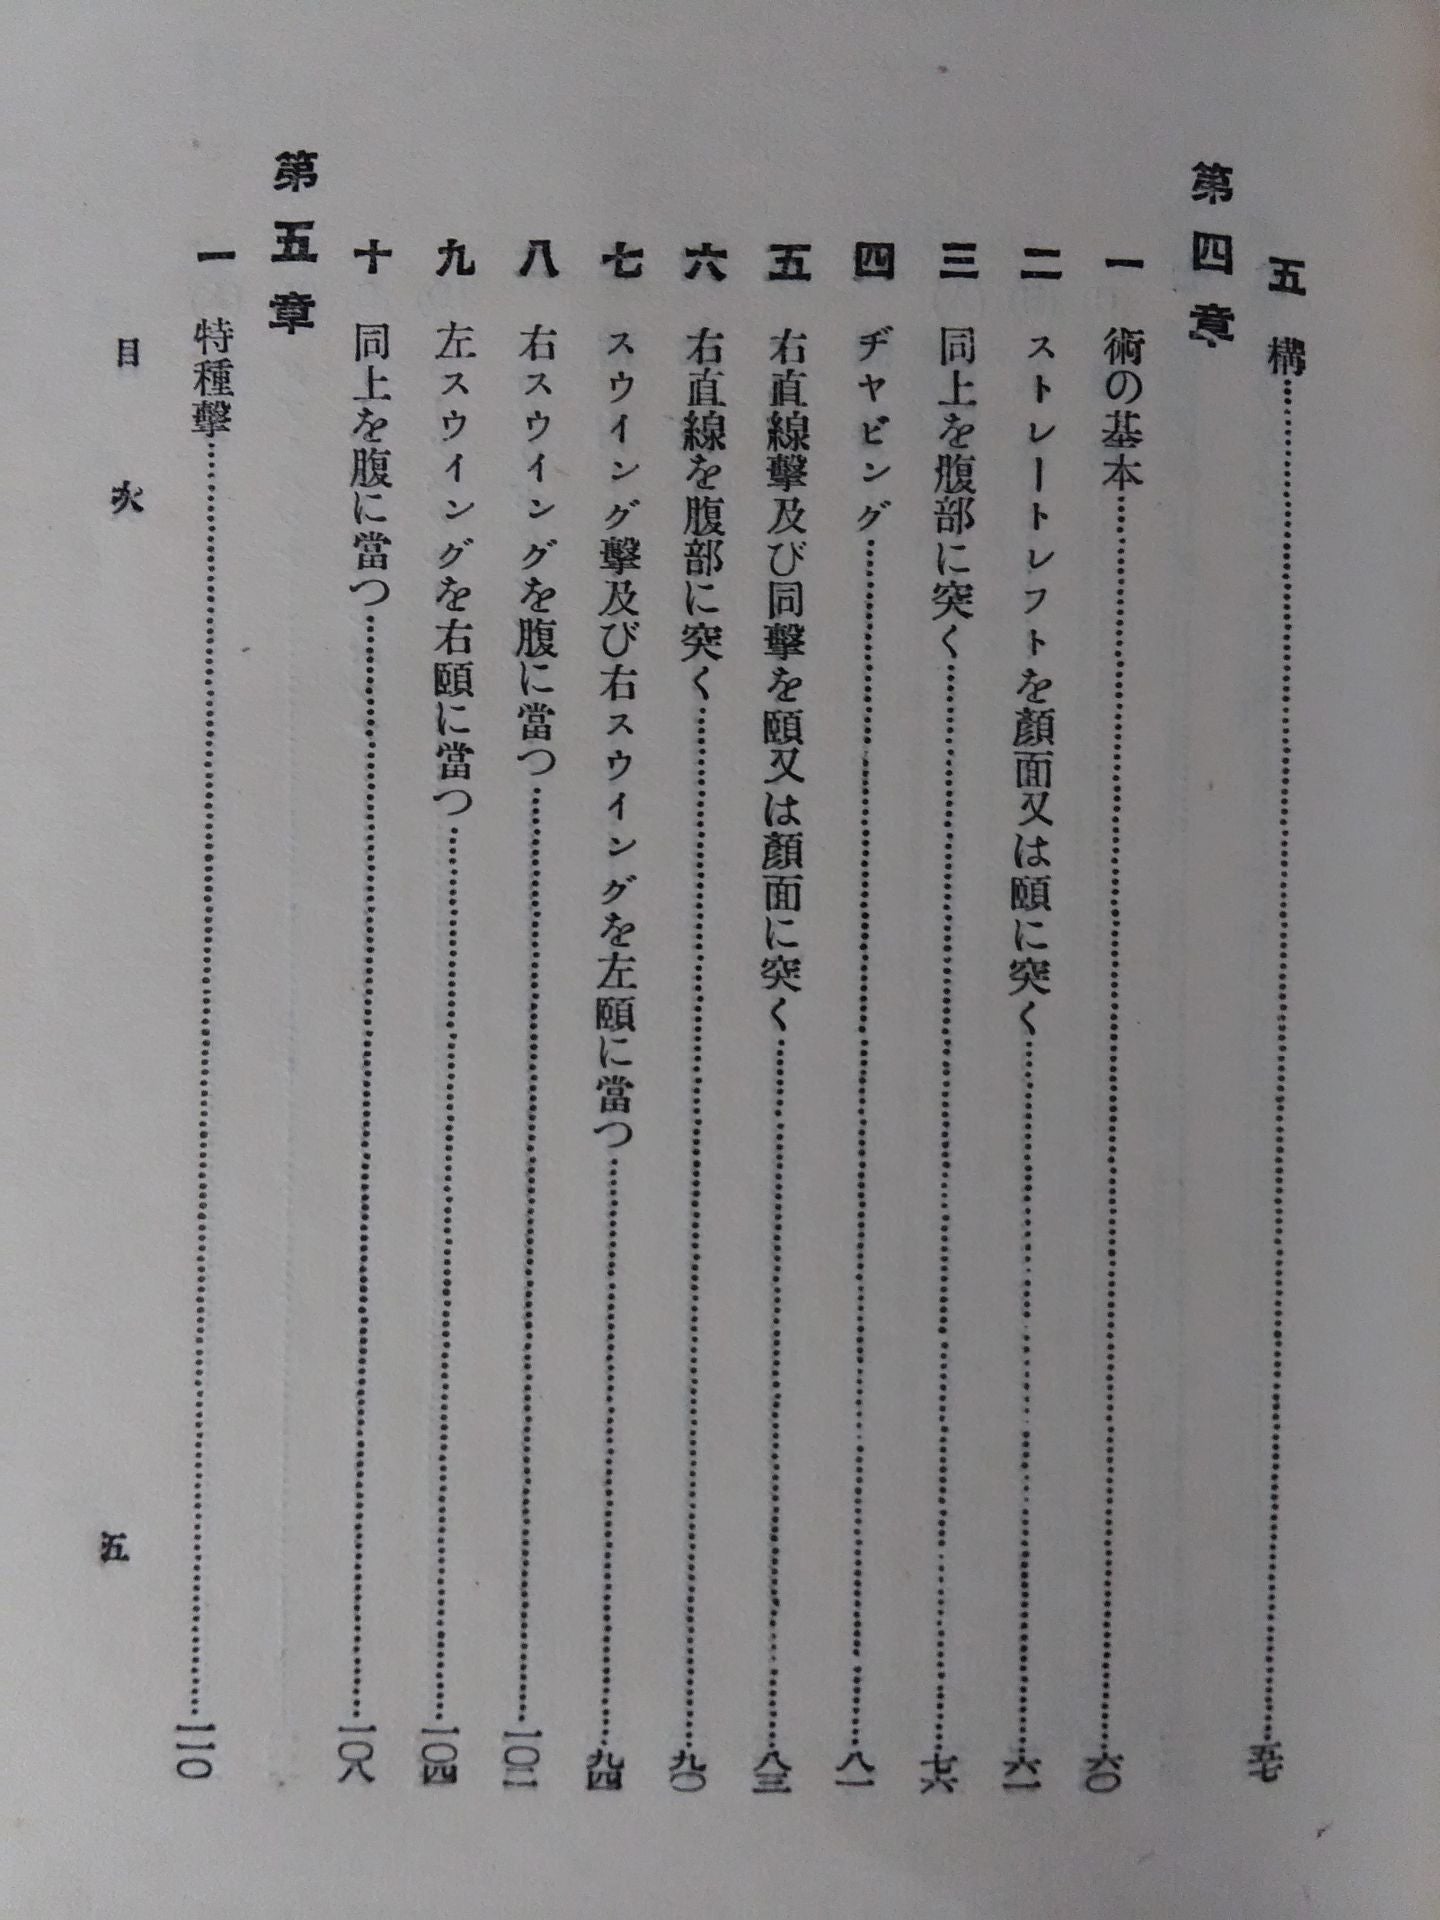 五 構……五七
第四章
一 術の基本……六〇
二 ストレートレフトを顏面又は頤に突く……六一
三 同上を腹部に突く……七六
四 ヂヤビング……八一
五 右直線擊及び同擊を頤又は顏面に突く……八三
六 右直線を腹部に突く……九〇
七 スウイング擊及び右スウイングを左頤に當つ……九四
八 右スウイングを腹に當つ……一〇二
九 左スウイングを右頤に當つ……一〇四
十 同上を腹に當つ……一〇八
第五章
一 特種擊……一一〇
目次 五